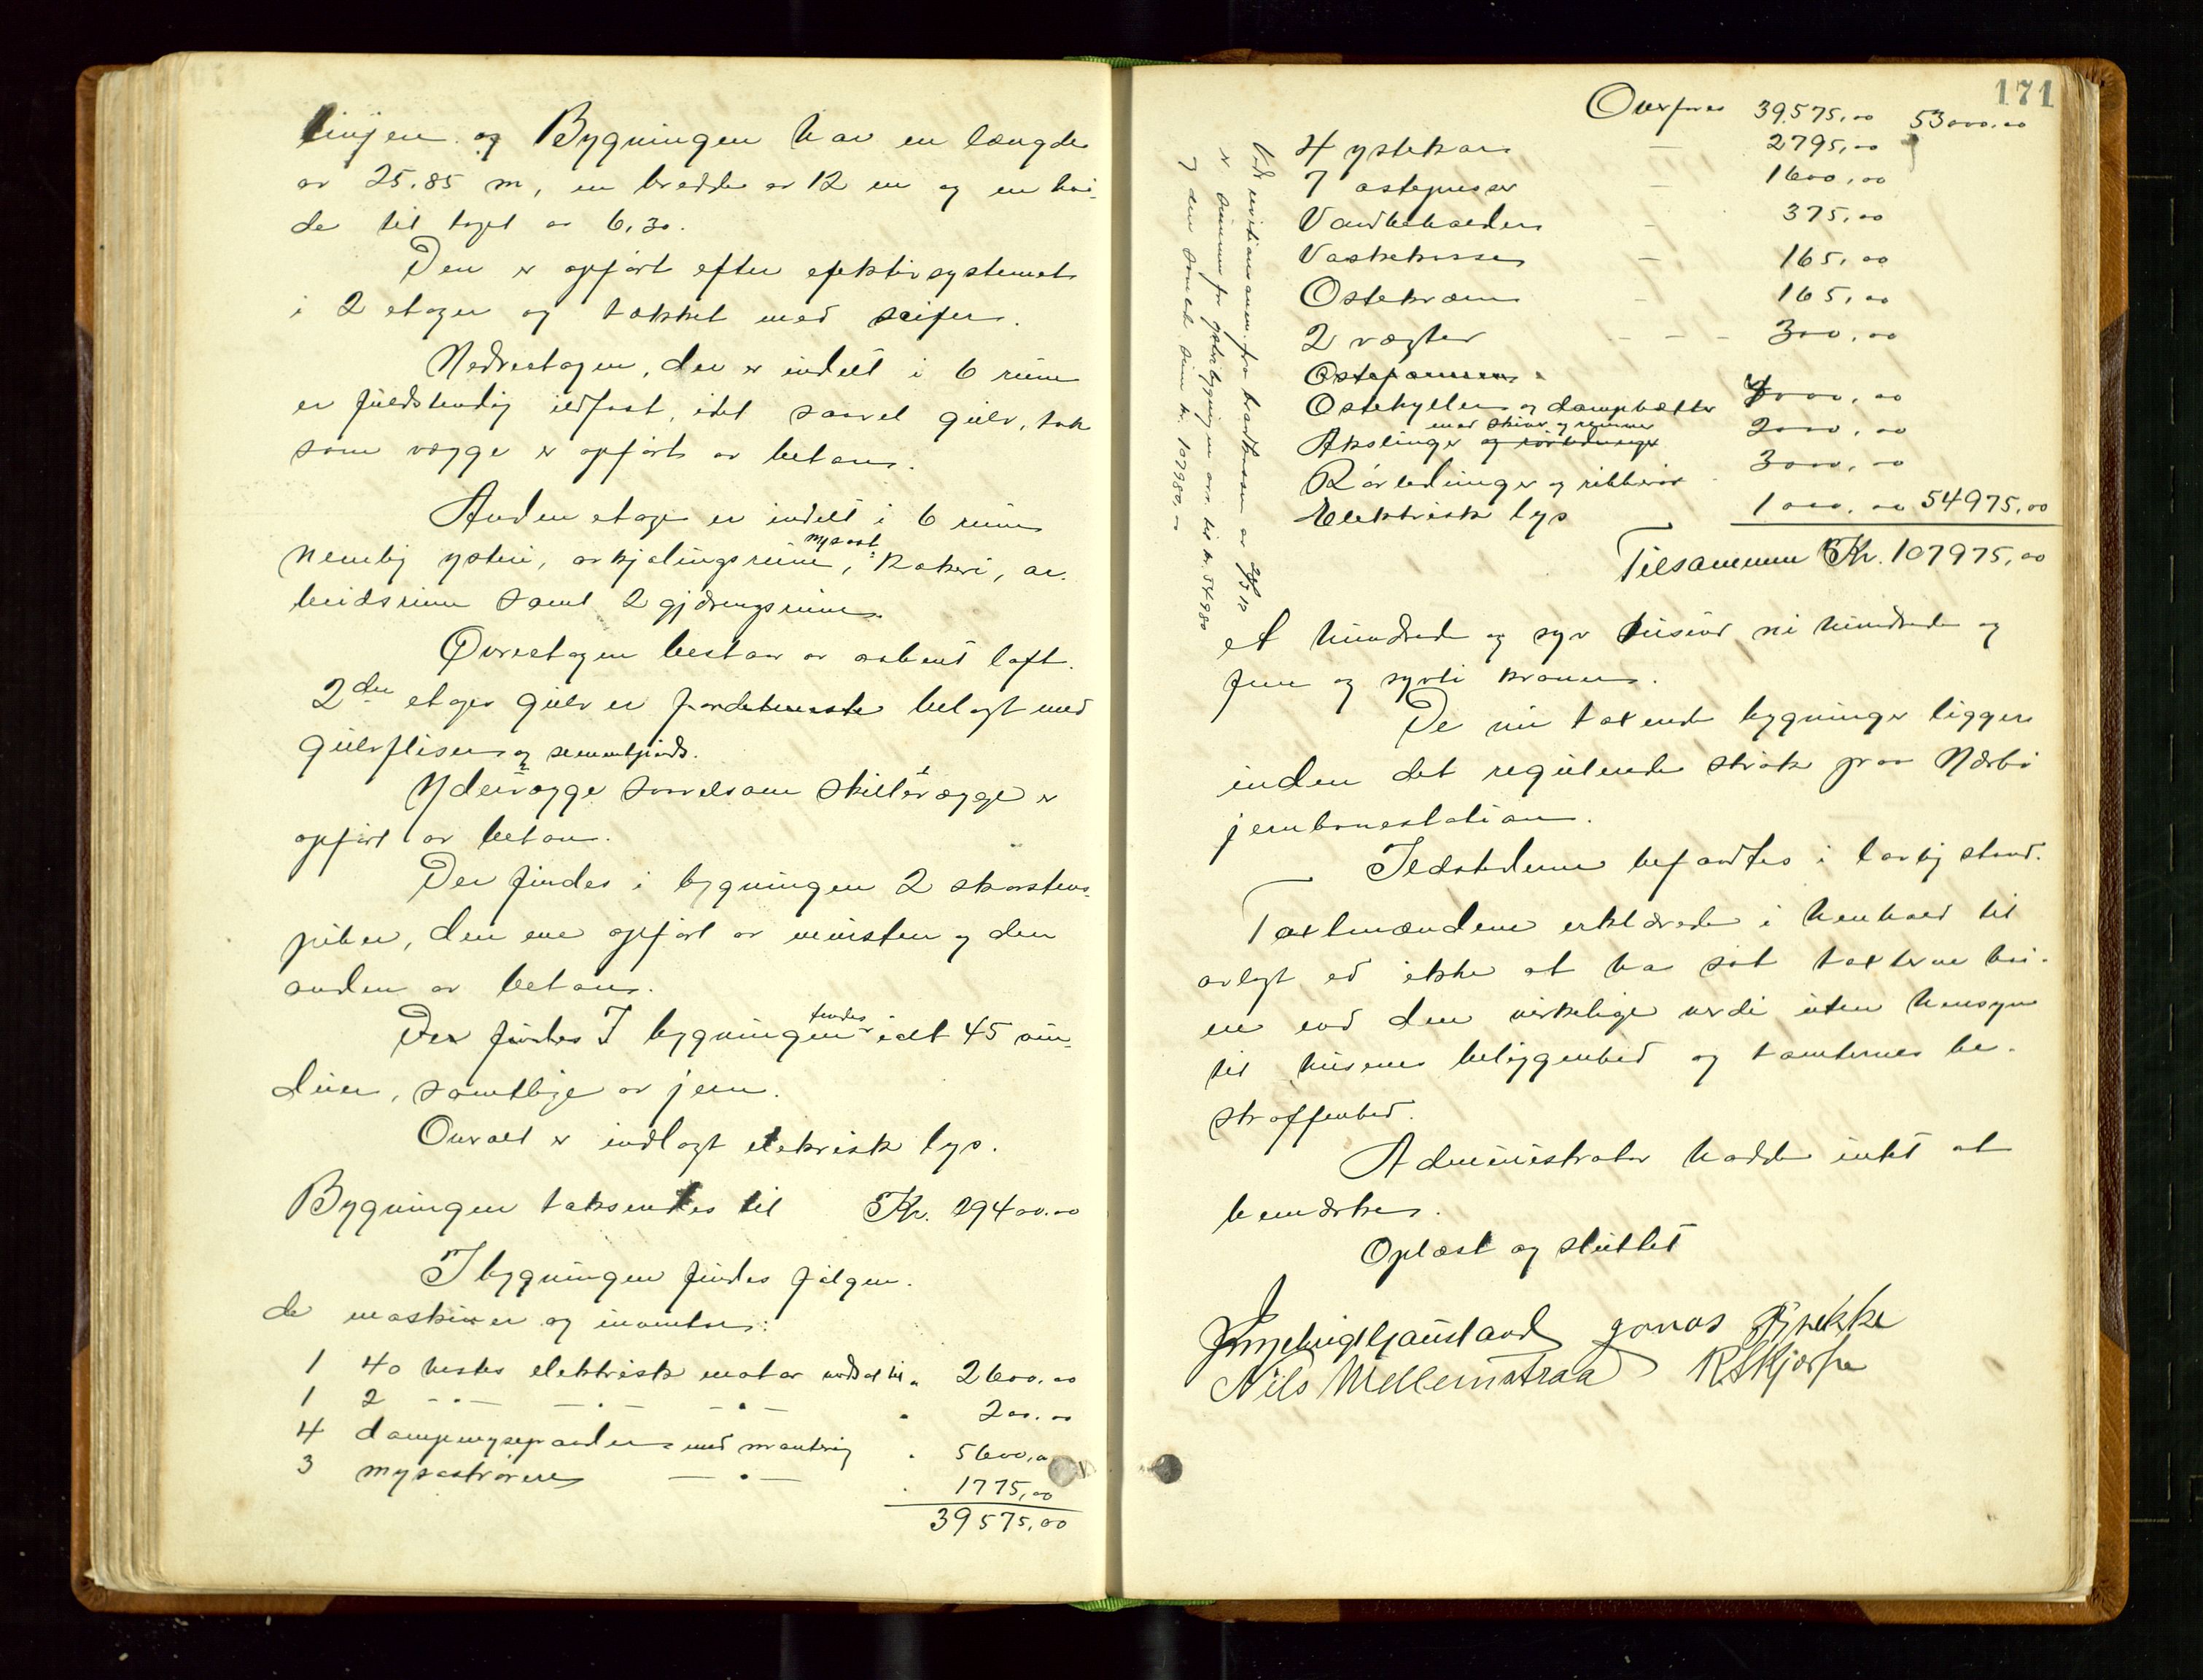 linjen og Bygningen har en længde
av 25.85 m, en bredde av 12 m og en høi-
de til taget av 6,30.
Den er opført efter efektivsystemet
i 2 etager og tækket med skifer.
Nedreetagen, der er inddelt i 6 rum
er fuldstendig ildfast, idet saavel gulv, tak
som vægge er opført av beton.
Anden etage er inddelt i 6 rum
nemlig ysteri, avkjølingsrum, mysost-kokeri, ar-
beidsrum samt 2 gjæringsrum.
Øvreetagen bestaar av aapent loft.
2den etages gulv er fordetmeste belagt med
gulvfliser og sementpuds.
Ydervægge saavelsom skillevægge er
opført av beton.
Der findes i bygningen 2 skorstens-
piber, den ene opført av mursten og den
anden av beton.
Der findes I bygningen findes ialt 45 vin-
duer, samtlige av jern.
Overalt er indlagt elekrisk lys.
Bygningen taksertes til Kr. 29400.00
I bygningen findes følgen-
de maskiner og inventar:
1 40 hestes elektrisk motor verdsat til " 2600.00
1 2 -"- -"- -"- " 200.00
4 dampmysepander med montering " 5600,00
3 mysostrørere -"- " 1775,00
39575,00
171
Overføres 39.575,00 53000,00
4 ystekar - 2795,00
7 ostepresser - 1600,00
Vandbeholder - 375,00
Vaskekasse - 165,00
Ostekram - 165,00
2 vægter - - - 300,00
Osteformer
Ostehylder og dampbatter 4000,00
Akslinger og rørledninger med skiver og remmer 2000,00
Rørledninger og ribberør 3000,00
Elektrisk lys 1000,00 54975,00
Tilsammen Kr. 107975,00
Ved revisionen fra brandkassen av
er summen for gjæsterbygningen til kr. 54980
og den samlede sum kr. 107980,00
et hundrede og syv tusind ni hundrede og
fem og sytti kroner.
De nu taxerede bygninger ligger
inden det regulerede strøk paa Nærbø
jernbanestation.
Ildstederne befandtes i lovlig stand.
Taxtmændene erklærede i henhold til
avlagt ed ikke at ha sat taxterne høi-
ere end den virkelige verdi uten hensyn
til husenes beliggenhed og tomternes be-
skaffenhed.
Administrator hadde intet at
bemærke.
Oplæst og sluttet
Ingebrigt Gausland Jonas Brekke
Nils Mellemstraa R. Skjærpe